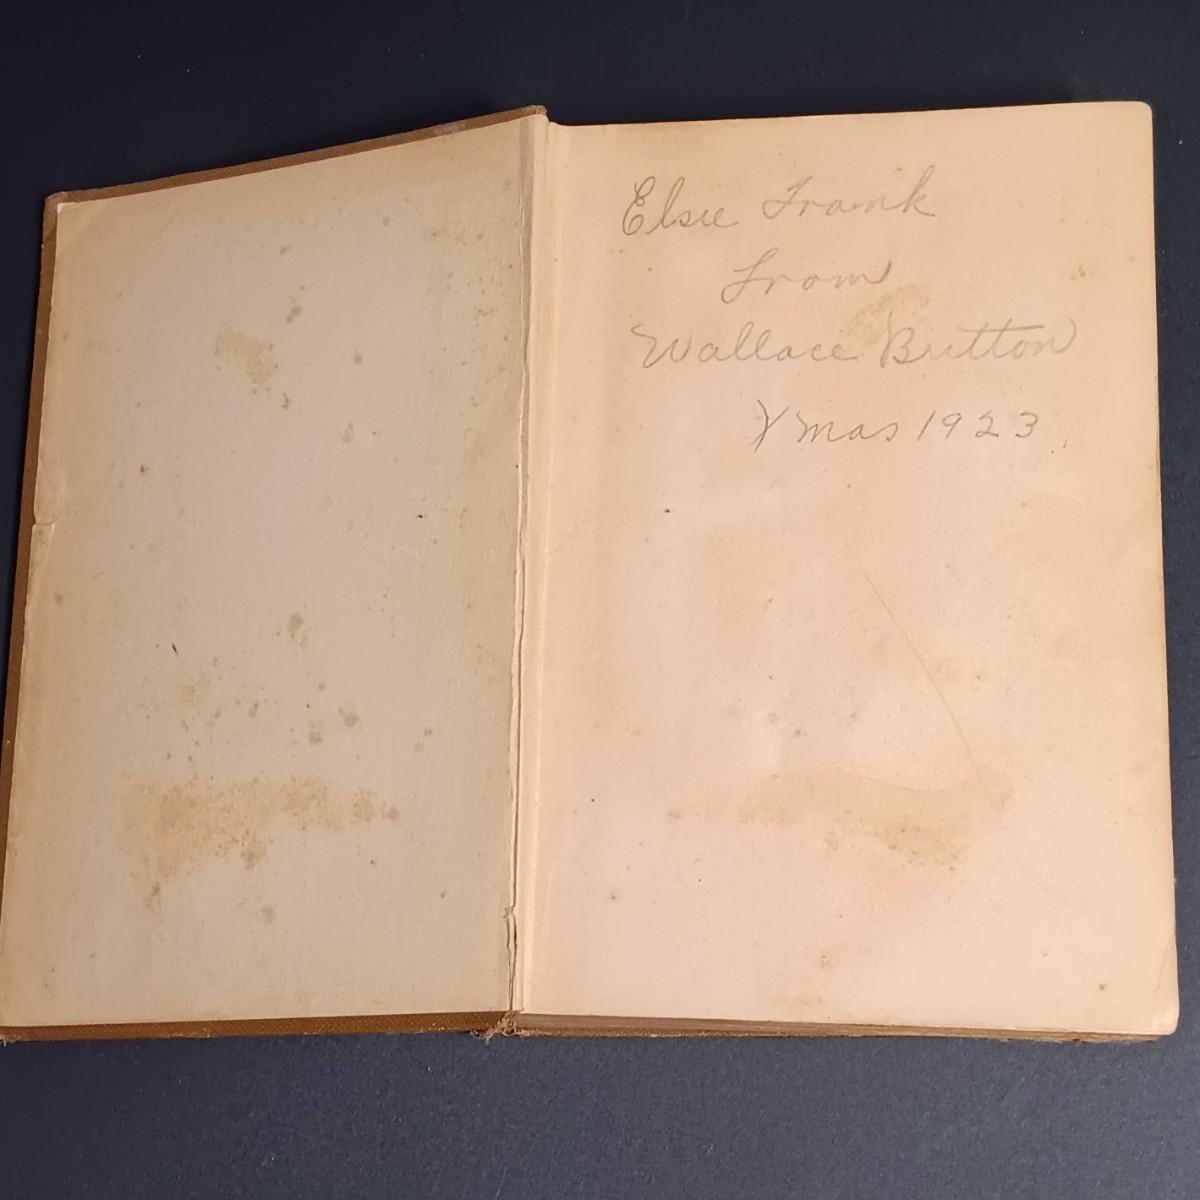 Elsie Frank
From
Wallace Button
Xmas 1923.